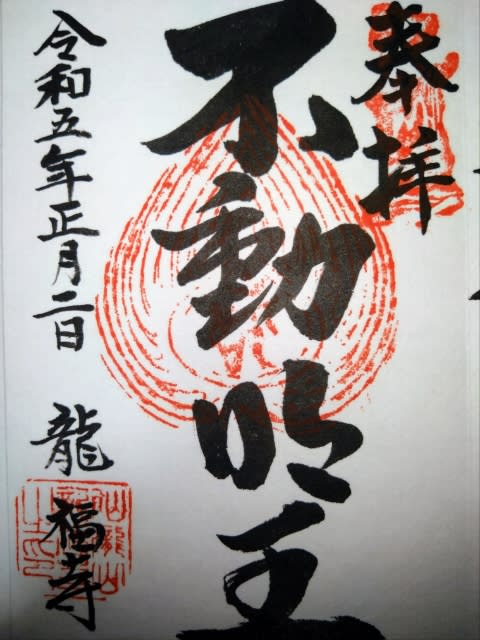 奉拝
不動明王
令和五年正月二日
龍福寺